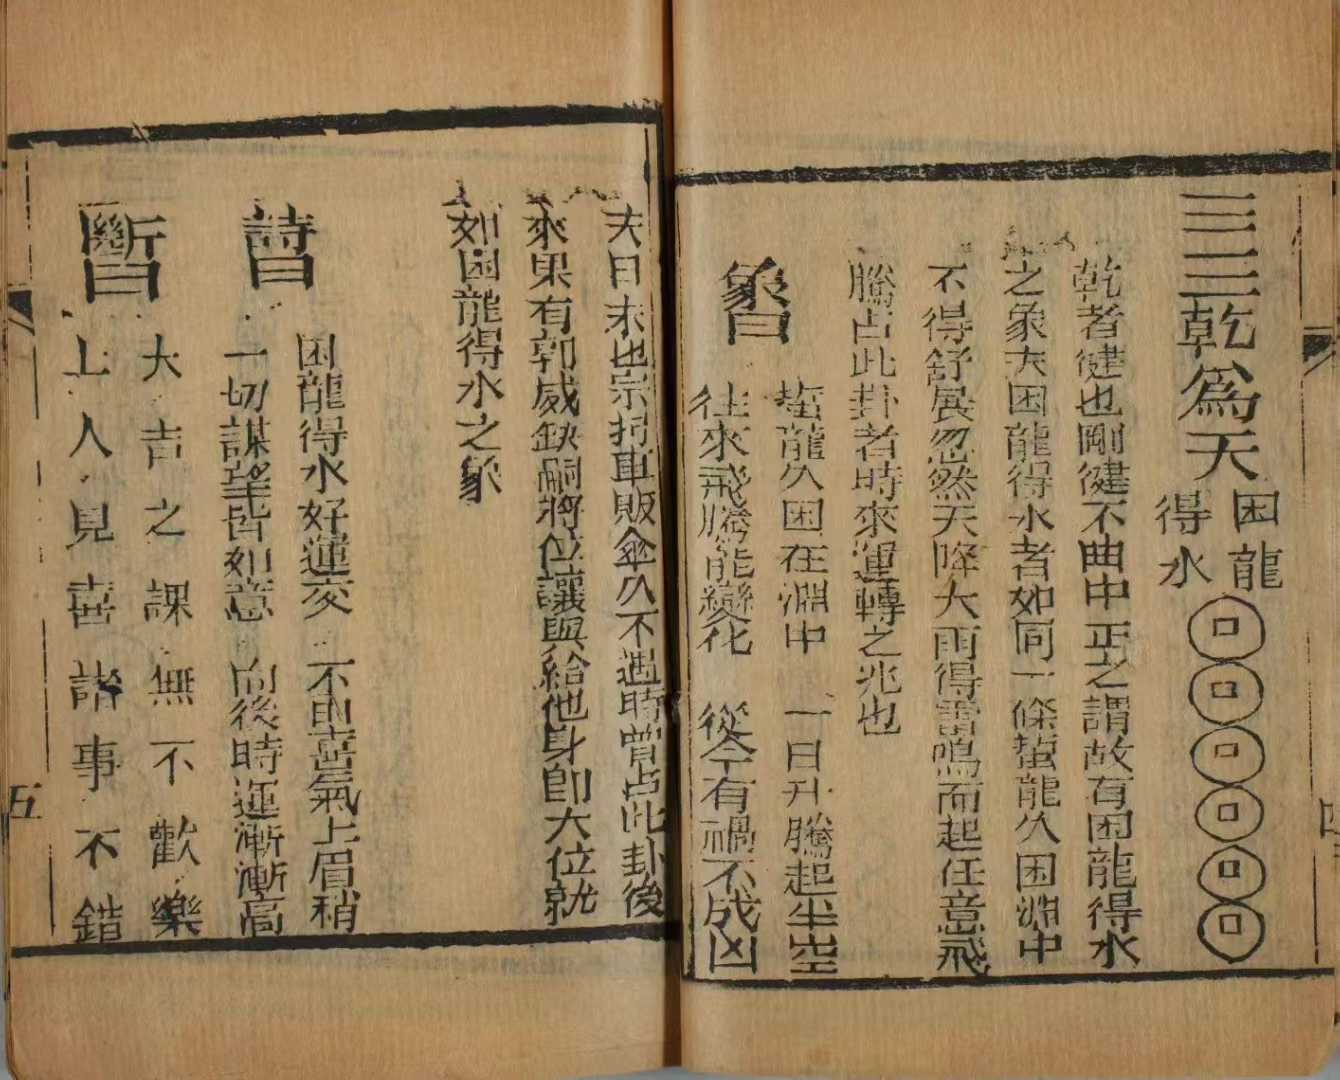 乾爲天
困龍
得水
乾者健也剛健不曲中正之謂故有困龍得水
之象夫困龍得水者如同一條蟄龍久困淵中
不得舒展忽然天降大雨得雷鳴而起任意飛
騰占此卦者時來運轉之兆也
象曰
蟄龍久困在淵中 一日升騰起半空
往來飛騰能變化 從今有禍不成凶
夫曰未也宗 車販傘久不遇時曾占此卦後
來果有郭威缺嗣將位讓與給他身卽大位就
如困龍得水之象
詩曰
困龍得水好運交 不由喜氣上眉稍
一切謀望皆如意 向後時運漸漸高
斷曰
大吉之課無不歡樂
上人見喜諸事不錯
五